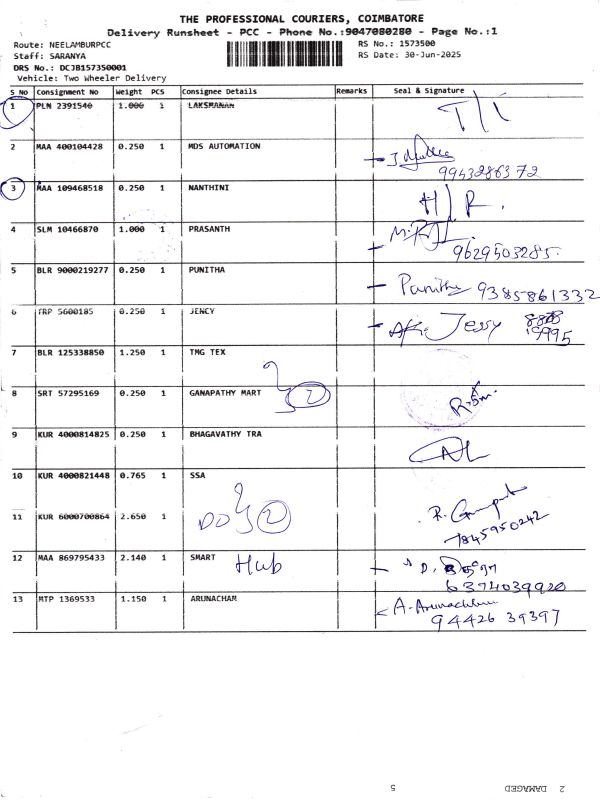 THE PROFESSIONAL COURIERS, COIMBATORE
Delivery Runsheet - PCC - Phone No.:9047080280 - Page No.:1
Route: NEELAMBURPCC
RS No.: 1573500
Staff: SARANYA
RS Date: 30-Jun-2025
DRS No.: DCJB157350001
Vehicle: Two Wheeler Delivery
S No Consignment No Weight PCS Consignee Details Remarks Seal & Signature
1 PLN 2391540 1.000 1 LAKSMANAN
2 MAA 400104428 0.250 1 MDS AUTOMATION
9943286372
3 MAA 109468518 0.250 1 NANTHINI
4 SLM 10466870 1.000 1 PRASANTH
9629503285.
5 BLR 9000219277 0.250 1 PUNITHA
Punitha 9385861332
6 TRP 5600185 0.250 1 JENCY
Jessy
7 BLR 125338850 1.250 1 TMG TEX
8 SRT 57295169 0.250 1 GANAPATHY MART 2
9 KUR 4000814825 0.250 1 BHAGAVATHY TRA
10 KUR 4000821448 0.765 1 SSA
11 KUR 6000700864 2.650 1
2
7845950242
12 MAA 869795433 2.140 1 SMART Hub
6374039920
13 MTP 1369533 1.150 1 ARUNACHAM
A. Arunachlam
94426 39397
5
2 DAMAGED